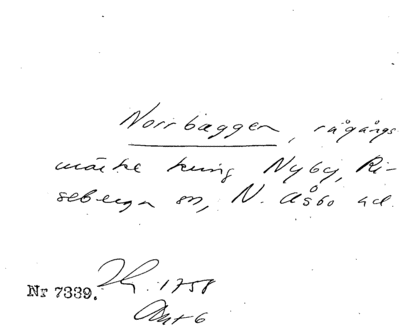 Norrbaggen, rågångs
märke kring Nyby, Ri-
seberga sn, N. Åsbo hd.
Nr 7339. 1758
Akt 6